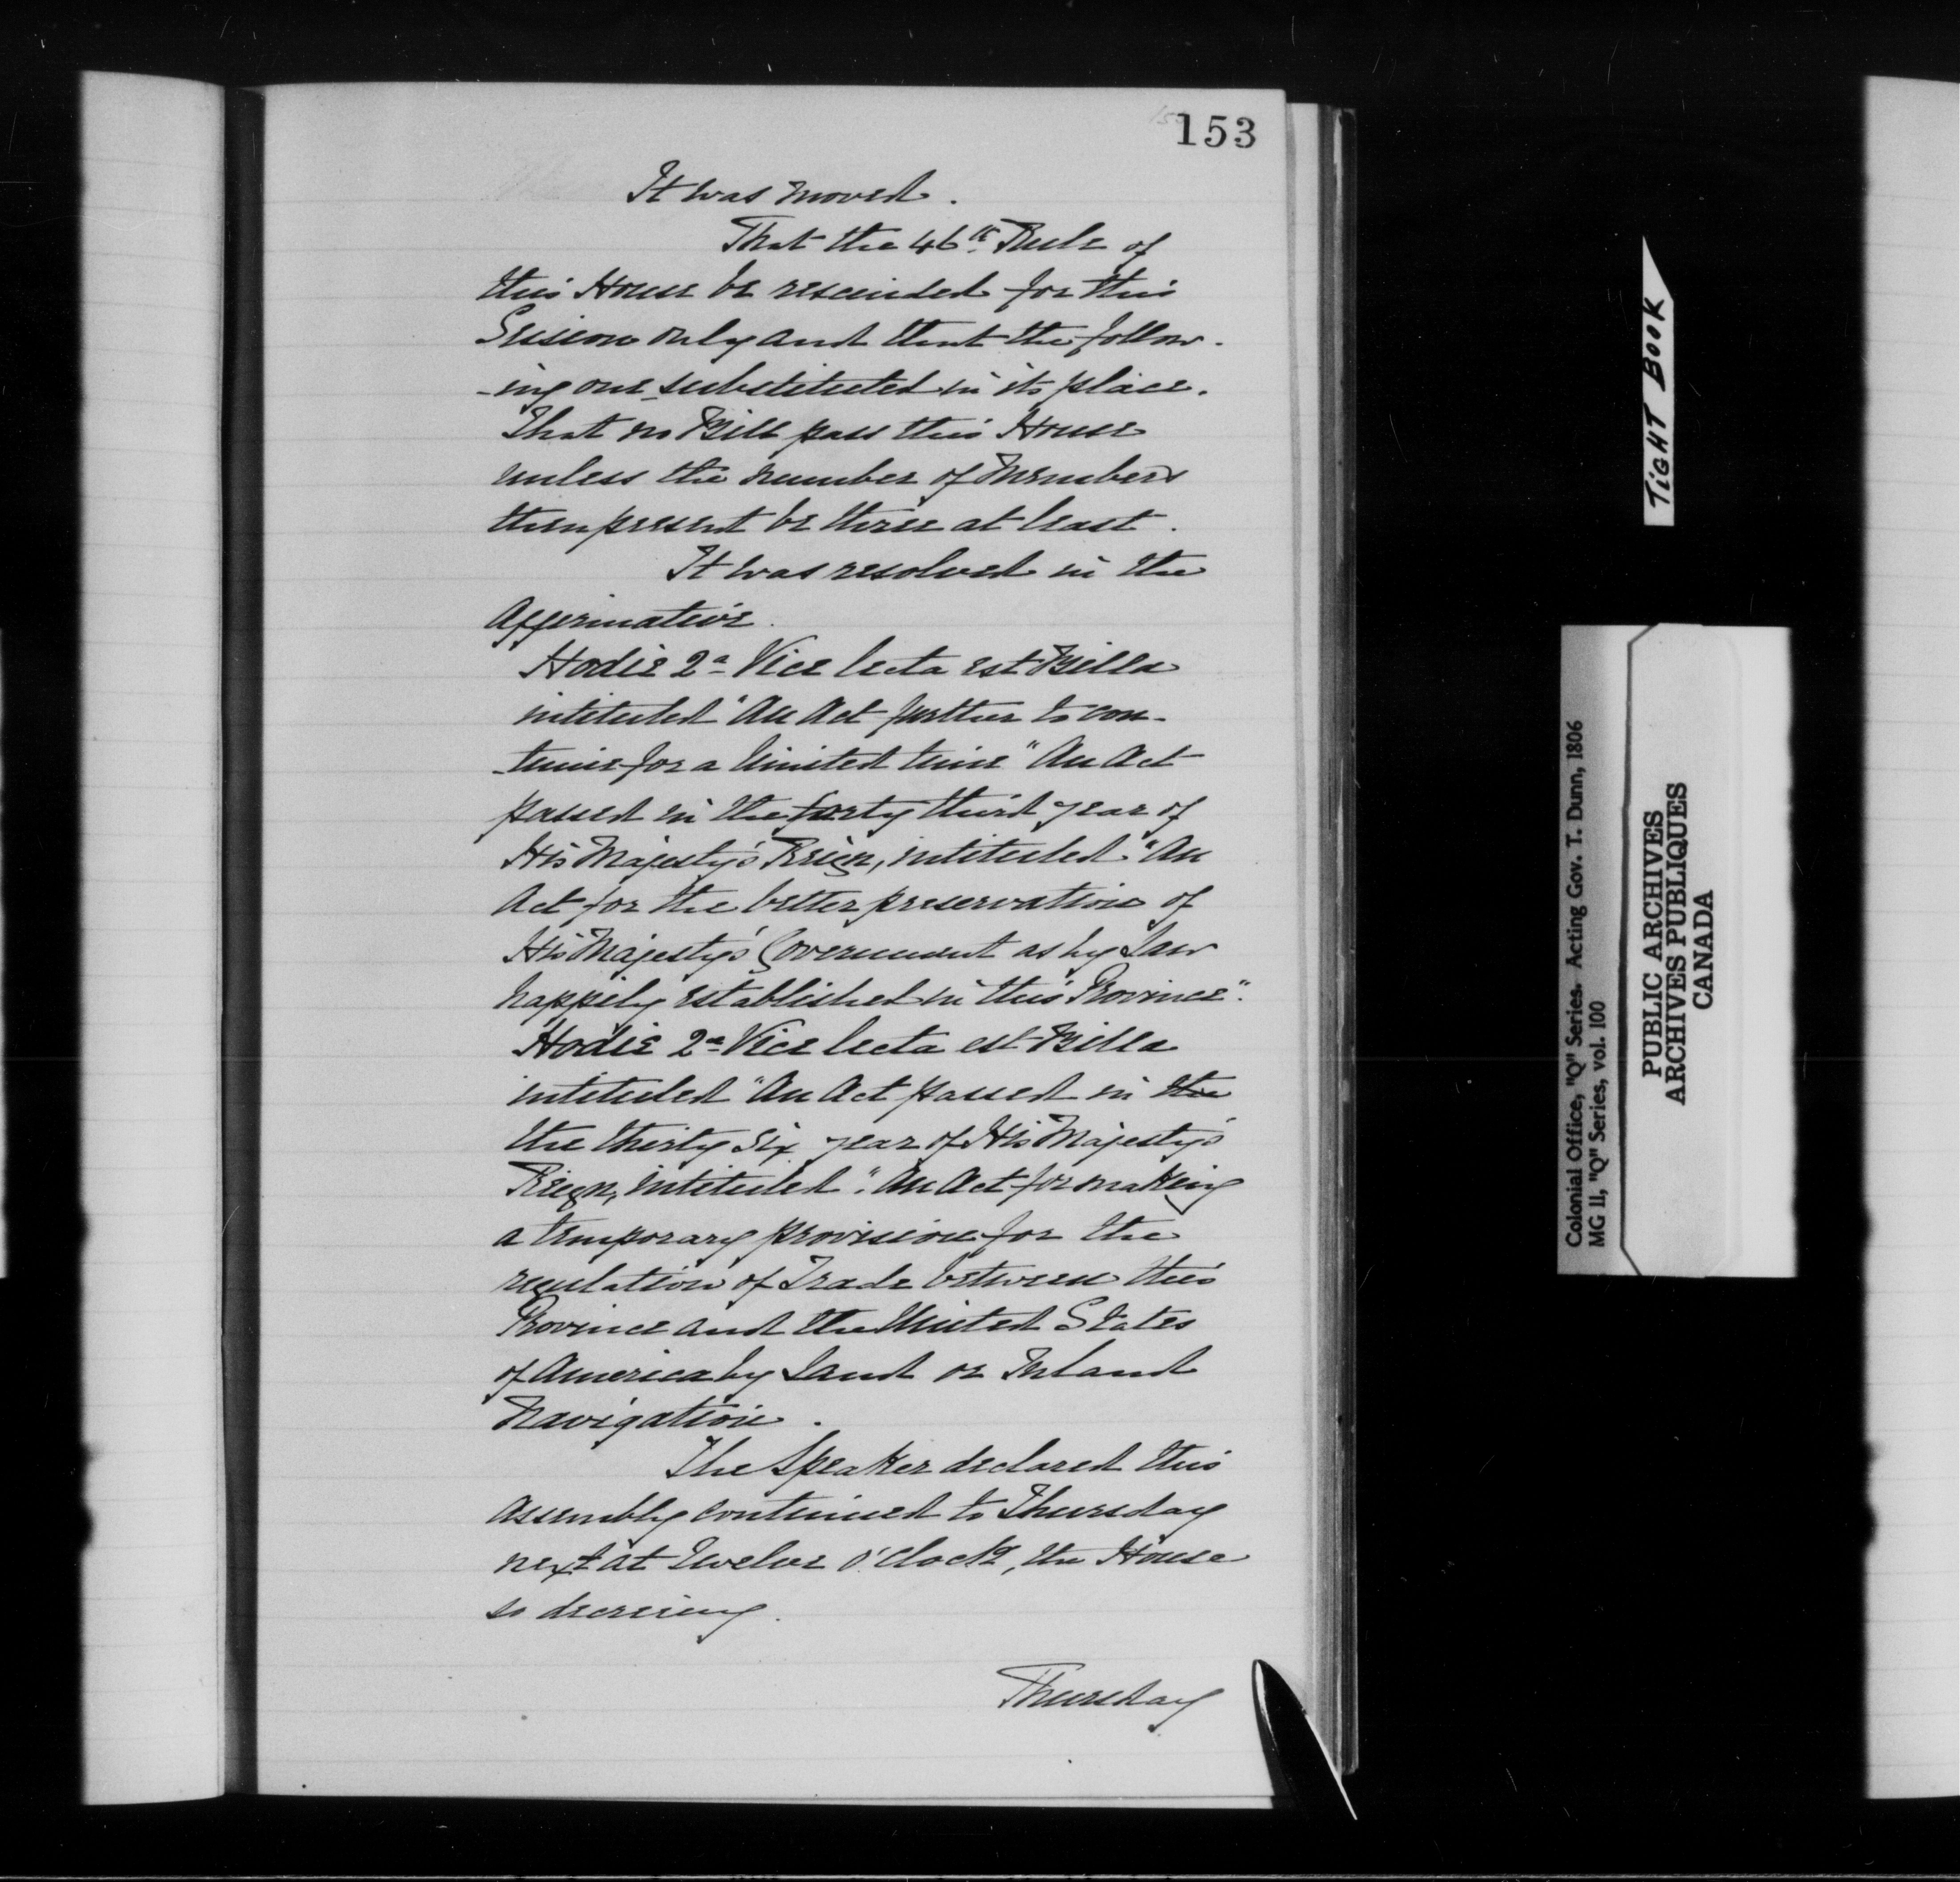 153
It was moved.
That the 46th Rule of
this House be rescinded for this
Session only and that the follow-
-ing one substituted in its place.
That no Bill pass this House
unless the number of Members
then present be three at least.
It was resolved in the
Affirmative.
Hodie 2a Vice lecta est Billa
intituled "An Act further to con-
-tinue for a limited time "An Act
passed in the forty third year of
His Majesty's Reign, intituled "An
Act for the better preservation of
His Majesty's Government as by Law
happily established in this Province".
Hodie 2a Vice lecta est Billa
intituled "An Act passed in the
the thirty six year of His Majesty's
Reign, intituled "An Act for making
a temporary provision for the
regulation of Trade between this
Province and the United States
of America by Land or Inland
Navigation.
The Speaker declared this
Assembly continued to Thursday
next at Twelve o'Clock, the House
so decreeing.
Thursday
TIGHT BOOK
Colonial Office, "Q" Series. Acting Gov. T. Dunn, 1806
MG 11, "Q" Series, vol. 100
PUBLIC ARCHIVES
ARCHIVES PUBLIQUES
CANADA